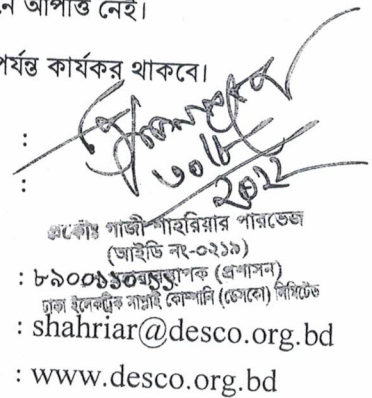 নে আপত্তি নেই।
পর্যন্ত কার্যকর থাকবে।
:
৩০।৮
২০১২
:
প্রকৌঃ গাজী শাহরিয়ার পারভেজ
(আইডি নং-০২১৯)
: ৮৯০০১১০
(প্রশাসন)
ঢাকা ইলেকট্রিক সাপ্লাই কোম্পানি (ডেসকো) লিমিটেড
: shahriar@desco.org.bd
: www.desco.org.bd